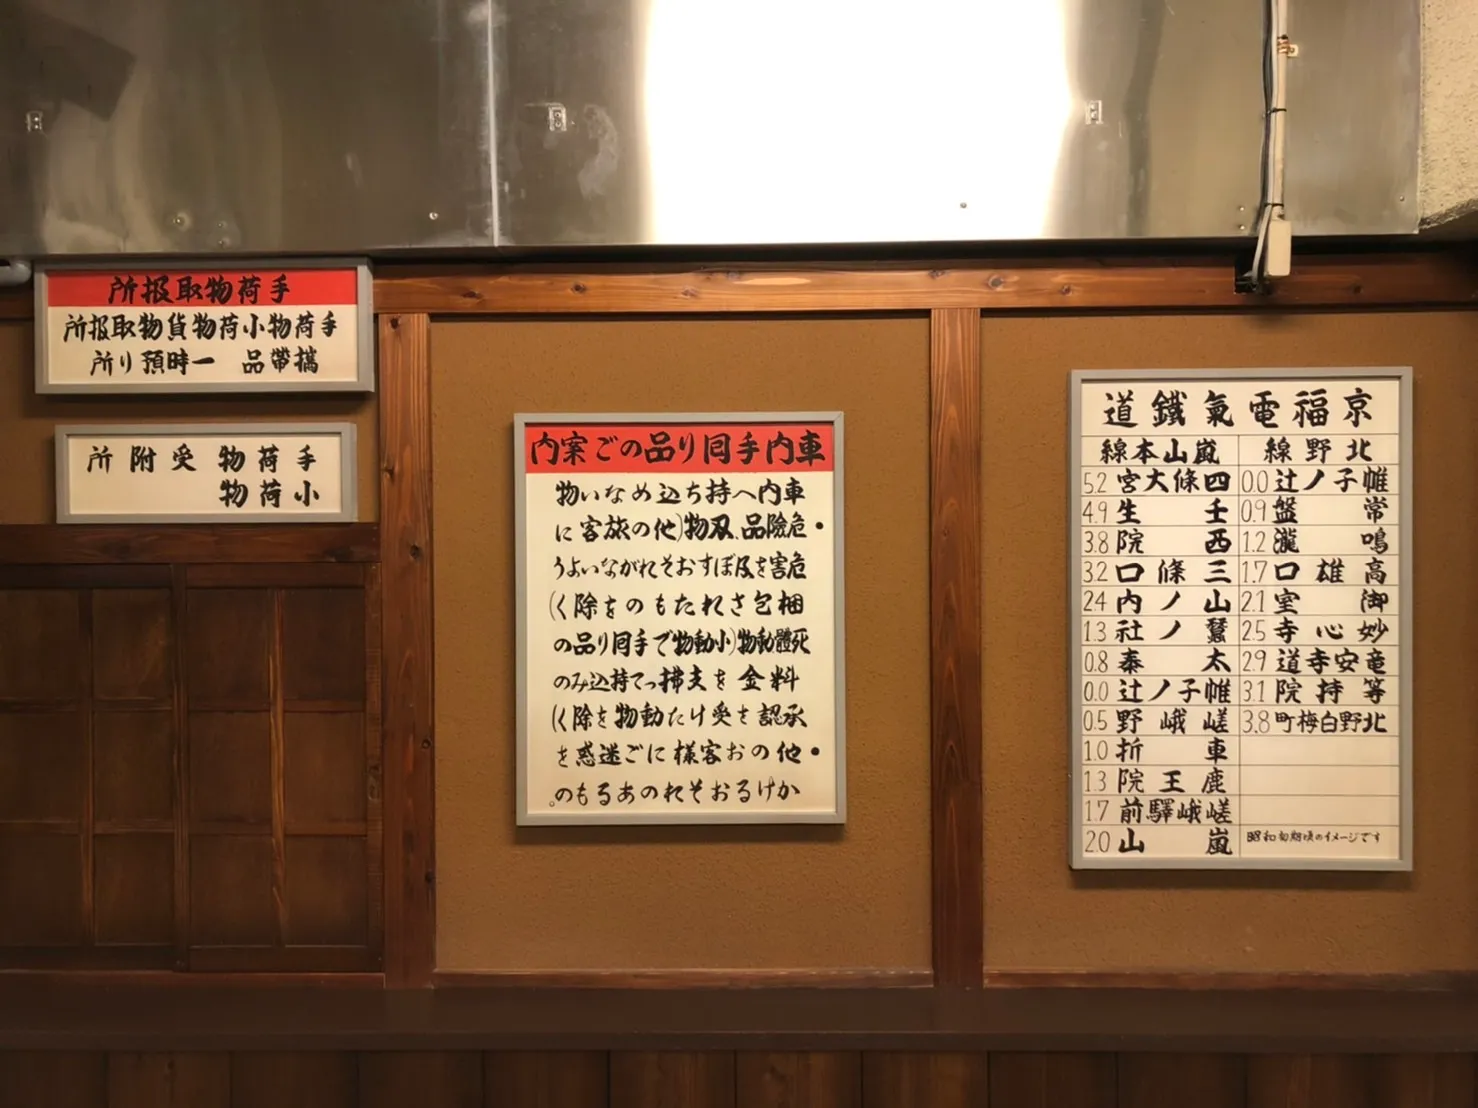 手荷物取扱所
手荷物小荷物貨物取扱所
攜帶品 一時預り所
手荷物受附所
小荷物
車内手囘り品のご案内
車内へ持ち込めない物
•危險品、刃物(他の旅客に
危害を及ぼすおそれがないよう
梱包されたものを除く)
死體動物(小動物で手囘り品の
料金を支拂って持込みの
承認を受けた動物を除く)
•他のお客様にご迷惑を
かけるおそれのあるもの。
京福電氣鐵道
北野線
帷子ノ辻 0.0
常盤 0.9
鳴瀧 1.2
高雄口 1.7
御室 2.1
妙心寺 2.5
竜安寺道 2.9
等持院 3.1
北野白梅町 3.8
昭和初期頃のイメージです
嵐山本線
四條大宮 5.2
壬生 4.9
西院 3.8
三條口 3.2
山ノ内 2.4
蠶ノ社 1.3
太秦 0.8
帷子ノ辻 0.0
嵯峨野 0.5
車折 1.0
鹿王院 1.3
嵯峨驛前 1.7
嵐山 2.0